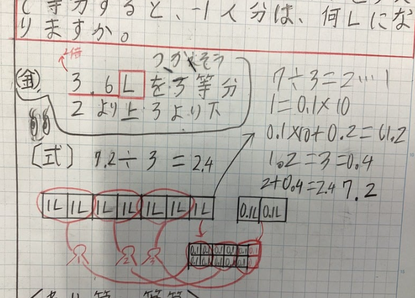 で等分すると、1人分は、何Lにな
りますか。
つかえそう
金 3.6Lを3等分
2より上3より下
[式] 7.2÷3=2.4
7÷3=2…1
1=0.1×10
0.1×10+0.2=1.2
1.2=3=0.4
2+0.4=2.4 7.2
1L 1L 1L 1L 1L 1L 1L 0.1L 0.1L